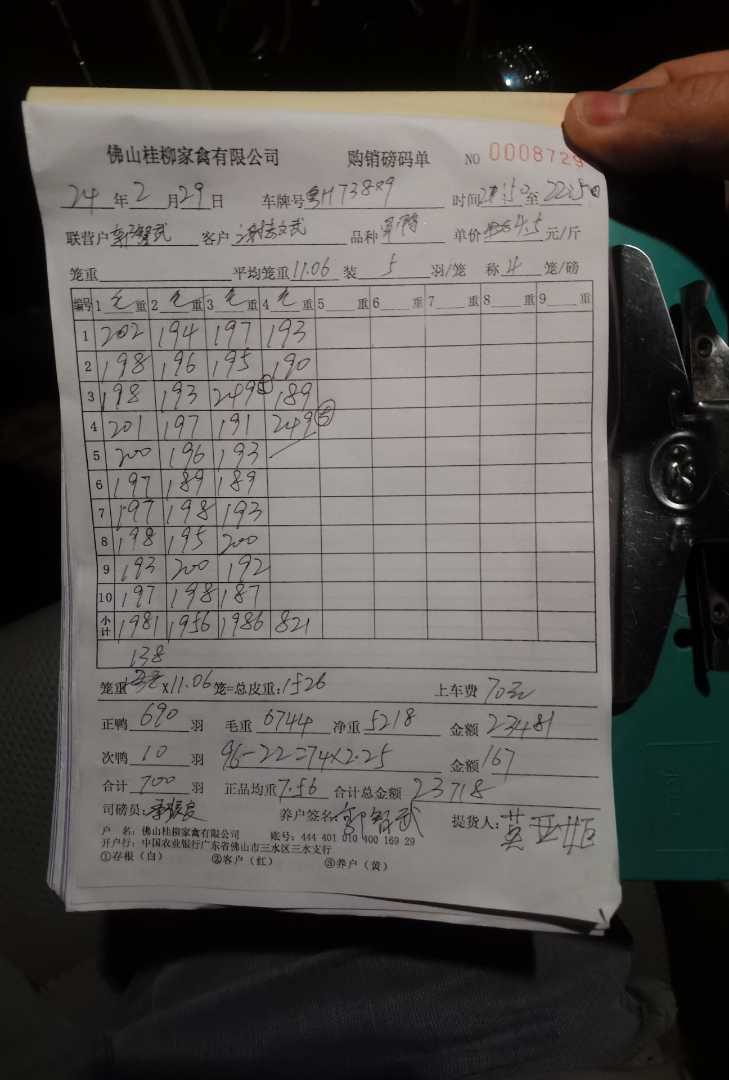 佛山桂柳家禽有限公司 购销磅码单 NO 0008729
24 年 2 月 29 日 车牌号 粤H73889 时间 至
联营户 客户 品种 单价 4.5 元/斤
笼重 平均笼重 11.06 装 5 羽/笼 称 4 笼/磅
编号 1 毛 重 2 毛 重 3 毛 重 4 毛 重 5 重 6 重 7 重 8 重 9 重
1 202 194 197 193
2 198 196 195 190
3 198 193 249⑤ 189
4 201 197 191 249⑤
5 200 196 193
6 197 189 189
7 197 198 193
8 198 195 200
9 193 200 192
10 197 198 187
小计 1981 1956 1986 821
138
笼重 x11.06 笼=总皮重: 1526 上车费 70元
正鸭 690 羽 毛重 6744 净重 5218 金额 23481
次鸭 10 羽 96-22=74×2.25 金额 167
合计 700 羽 正品均重 7.56 合计总金额 23718
司磅员: 养户签名: 智武 提货人: 黄
户 名: 佛山桂柳家禽有限公司 账号: 444 401 010 400 169 29
开户行: 中国农业银行广东省佛山市三水区三水支行
①存根（白） ②客户（红） ③养户（黄）